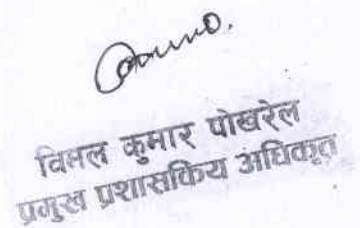 विमल कुमार पोखरेल
प्रमुख प्रशासकिय अधिकृत